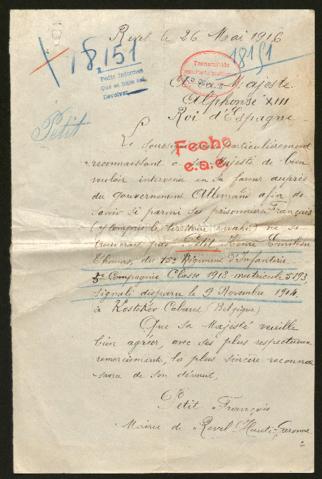 Revel le 26 Mai 1916
18151
18151
Petit Informes
Que se sapa así.
Devolver
A Sa Majesté
Alphonse XIII
Roi d'Espagne
Petit
Le particulièrement
reconnaissant à Majesté de bien
vouloir intervenir en sa faveur auprès
du gouvernement Allemand afin de
savoir si parmi ses prisonniers Français
(y compris le territoire ) ne se
trouverait pas Petit
Thomas, du 15e Régiment d'Infanterie
5e Compagnie Classe 1913 matricule 5193
signalé disparu le 9 Novembre 1914
à Cabaret (Belgique)
Fecho
e.a.e.
Que sa Majesté veuille
bien agréer, avec ses plus respectueux
remerciements, la plus sincère reconnais
sance de son dévoué,
Petit François
Mairie de Revel Haute-Garonne